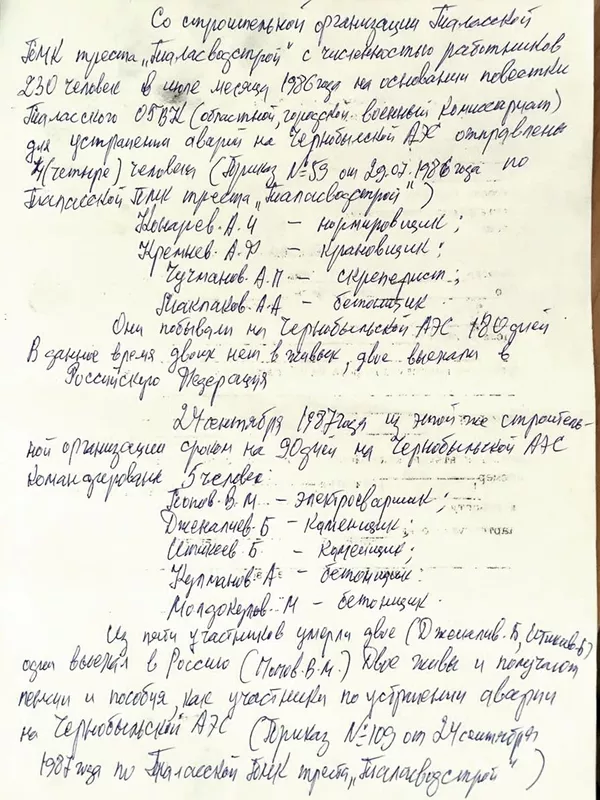 Со строительной организации Таласской
ПМК треста „Таласводстрой" с численностью работников
230 человек в июле месяца 1986 года на основании повестки
Таласского ОГВК (областной, городской военный комиссариат)
для устранения аварий на Чернобылской АЭС отправлены
4 (четыре) человека (Приказ №59 от 29.07.1986 года по
Таласской ПМК треста „Таласводстрой")
Конарев. А. И – нормировщик;
Кремнев. А. Ф – крановщик;
Чучманов. А. П – скреперист;
Маклаков. А. А – бетонщик.
Они побывали на Чернобыльской АЭС 180 дней
В данное время двоих нет в живых, двое выехали в
Российского Федерация
24 сентября 1987 года из этой же строитель-
ной организации сроком на 90 дней на Чернобыльской АЭС
командированы 5 человек:
Попов. В. М. – электросварщик;
Дженалиев. Б – каменщик;
Итикеев. Б. – каменщик;
Кулманов. А – бетонщик.
Молдокулов. М – бетонщик.
Из пяти участников умерли двое (Дженалив. Б, Итикив. Б)
один выехал в Россию (Попов. В. М.) Двое живы и получают
пенсии и пособия, как участники по устрнении аварии
на Чернобыльской АЭС (Приказ №109 от 24 сентября
1987 года по Таласской ПМК треста „Таласводстрой")